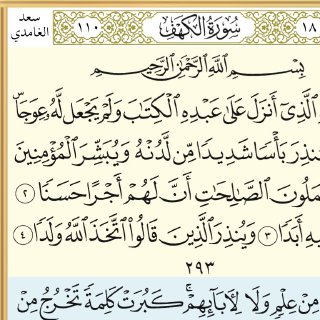 سعد
الغامدي
١١٠ سُورَةُ الكَهْفِ ١٨
بِسْمِ اللَّهِ الرَّحْمَٰنِ الرَّحِيمِ
الَّذِىٓ أَنزَلَ عَلَىٰ عَبْدِهِ الْكِتَٰبَ وَلَمْ يَجْعَل لَّهُۥ عِوَجَاۜ
نذِرَ بَأْسًا شَدِيدًا مِّن لَّدُنْهُ وَيُبَشِّرَ الْمُؤْمِنِينَ
مَلُونَ الصَّٰلِحَٰتِ أَنَّ لَهُمْ أَجْرًا حَسَنًا ٢
يهِ أَبَدًا ٣ وَيُنذِرَ الَّذِينَ قَالُوا۟ اتَّخَذَ اللَّهُ وَلَدًا ٤
٢٩٣
مِنْ عِلْمٍ وَلَا لِـَٔابَآئِهِمْ ۚ كَبُرَتْ كَلِمَةً تَخْرُجُ مِنْ